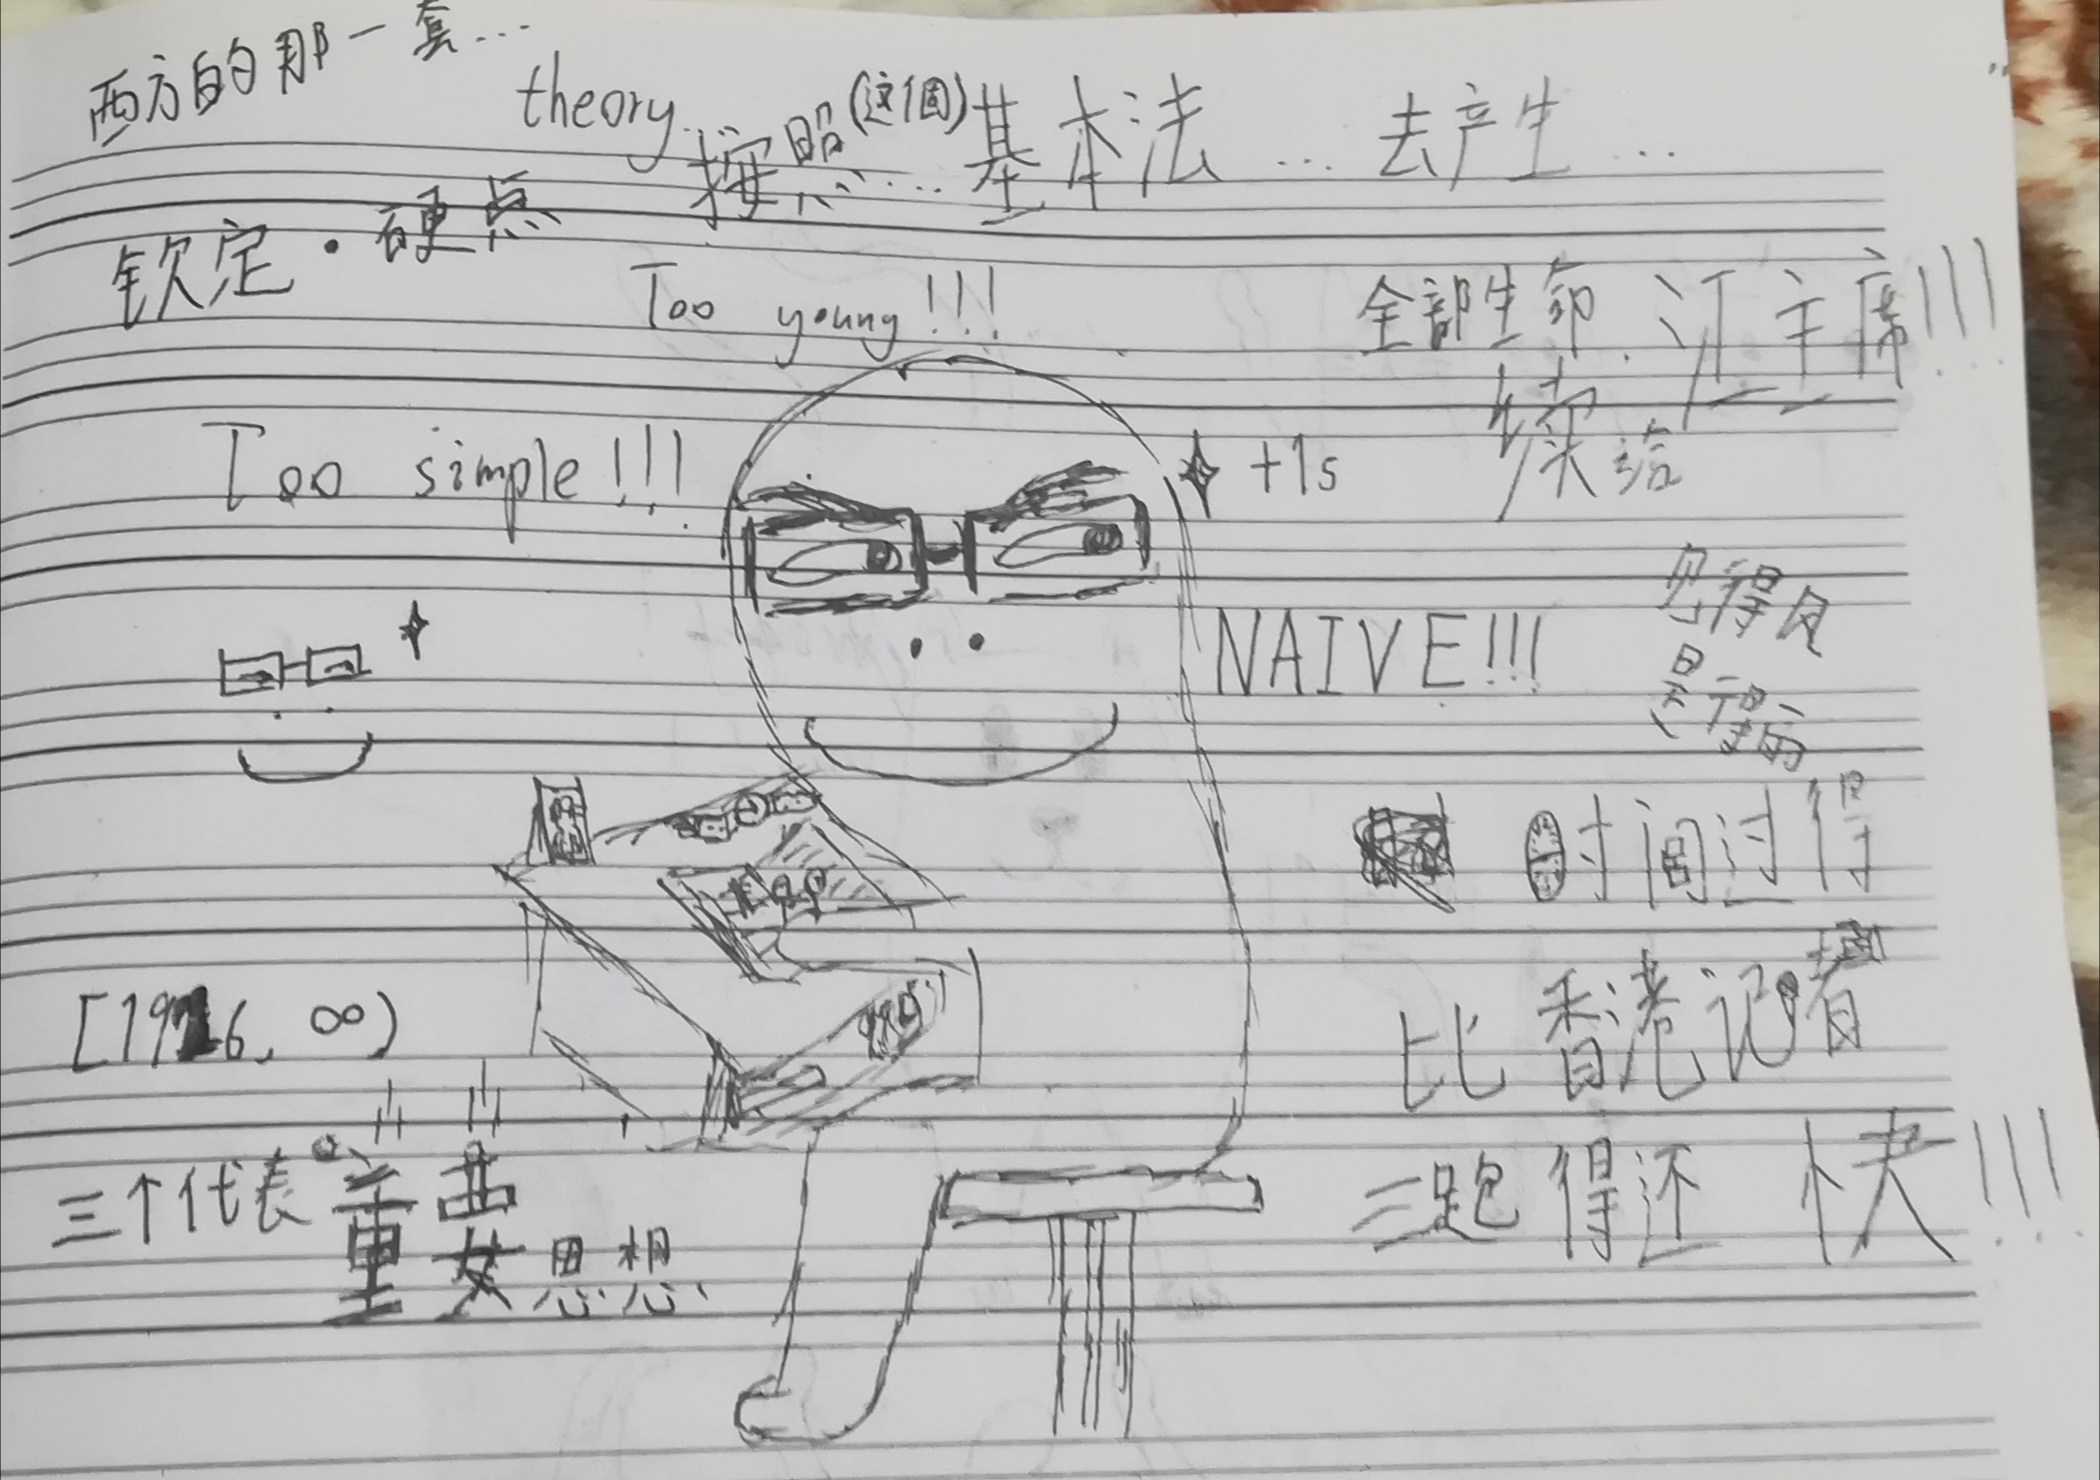 西方的那一套...
theory...
按照(这個)...基本法...去产生...
钦定·硬点
Too young!!!
全部生命 江主席!!!
续给
Too simple!!!
+1s
NAIVE!!!
见得风
是得雨
时间过得
[1926, ∞)
比香港记者
三个代表重要思想
跑得还快!!!